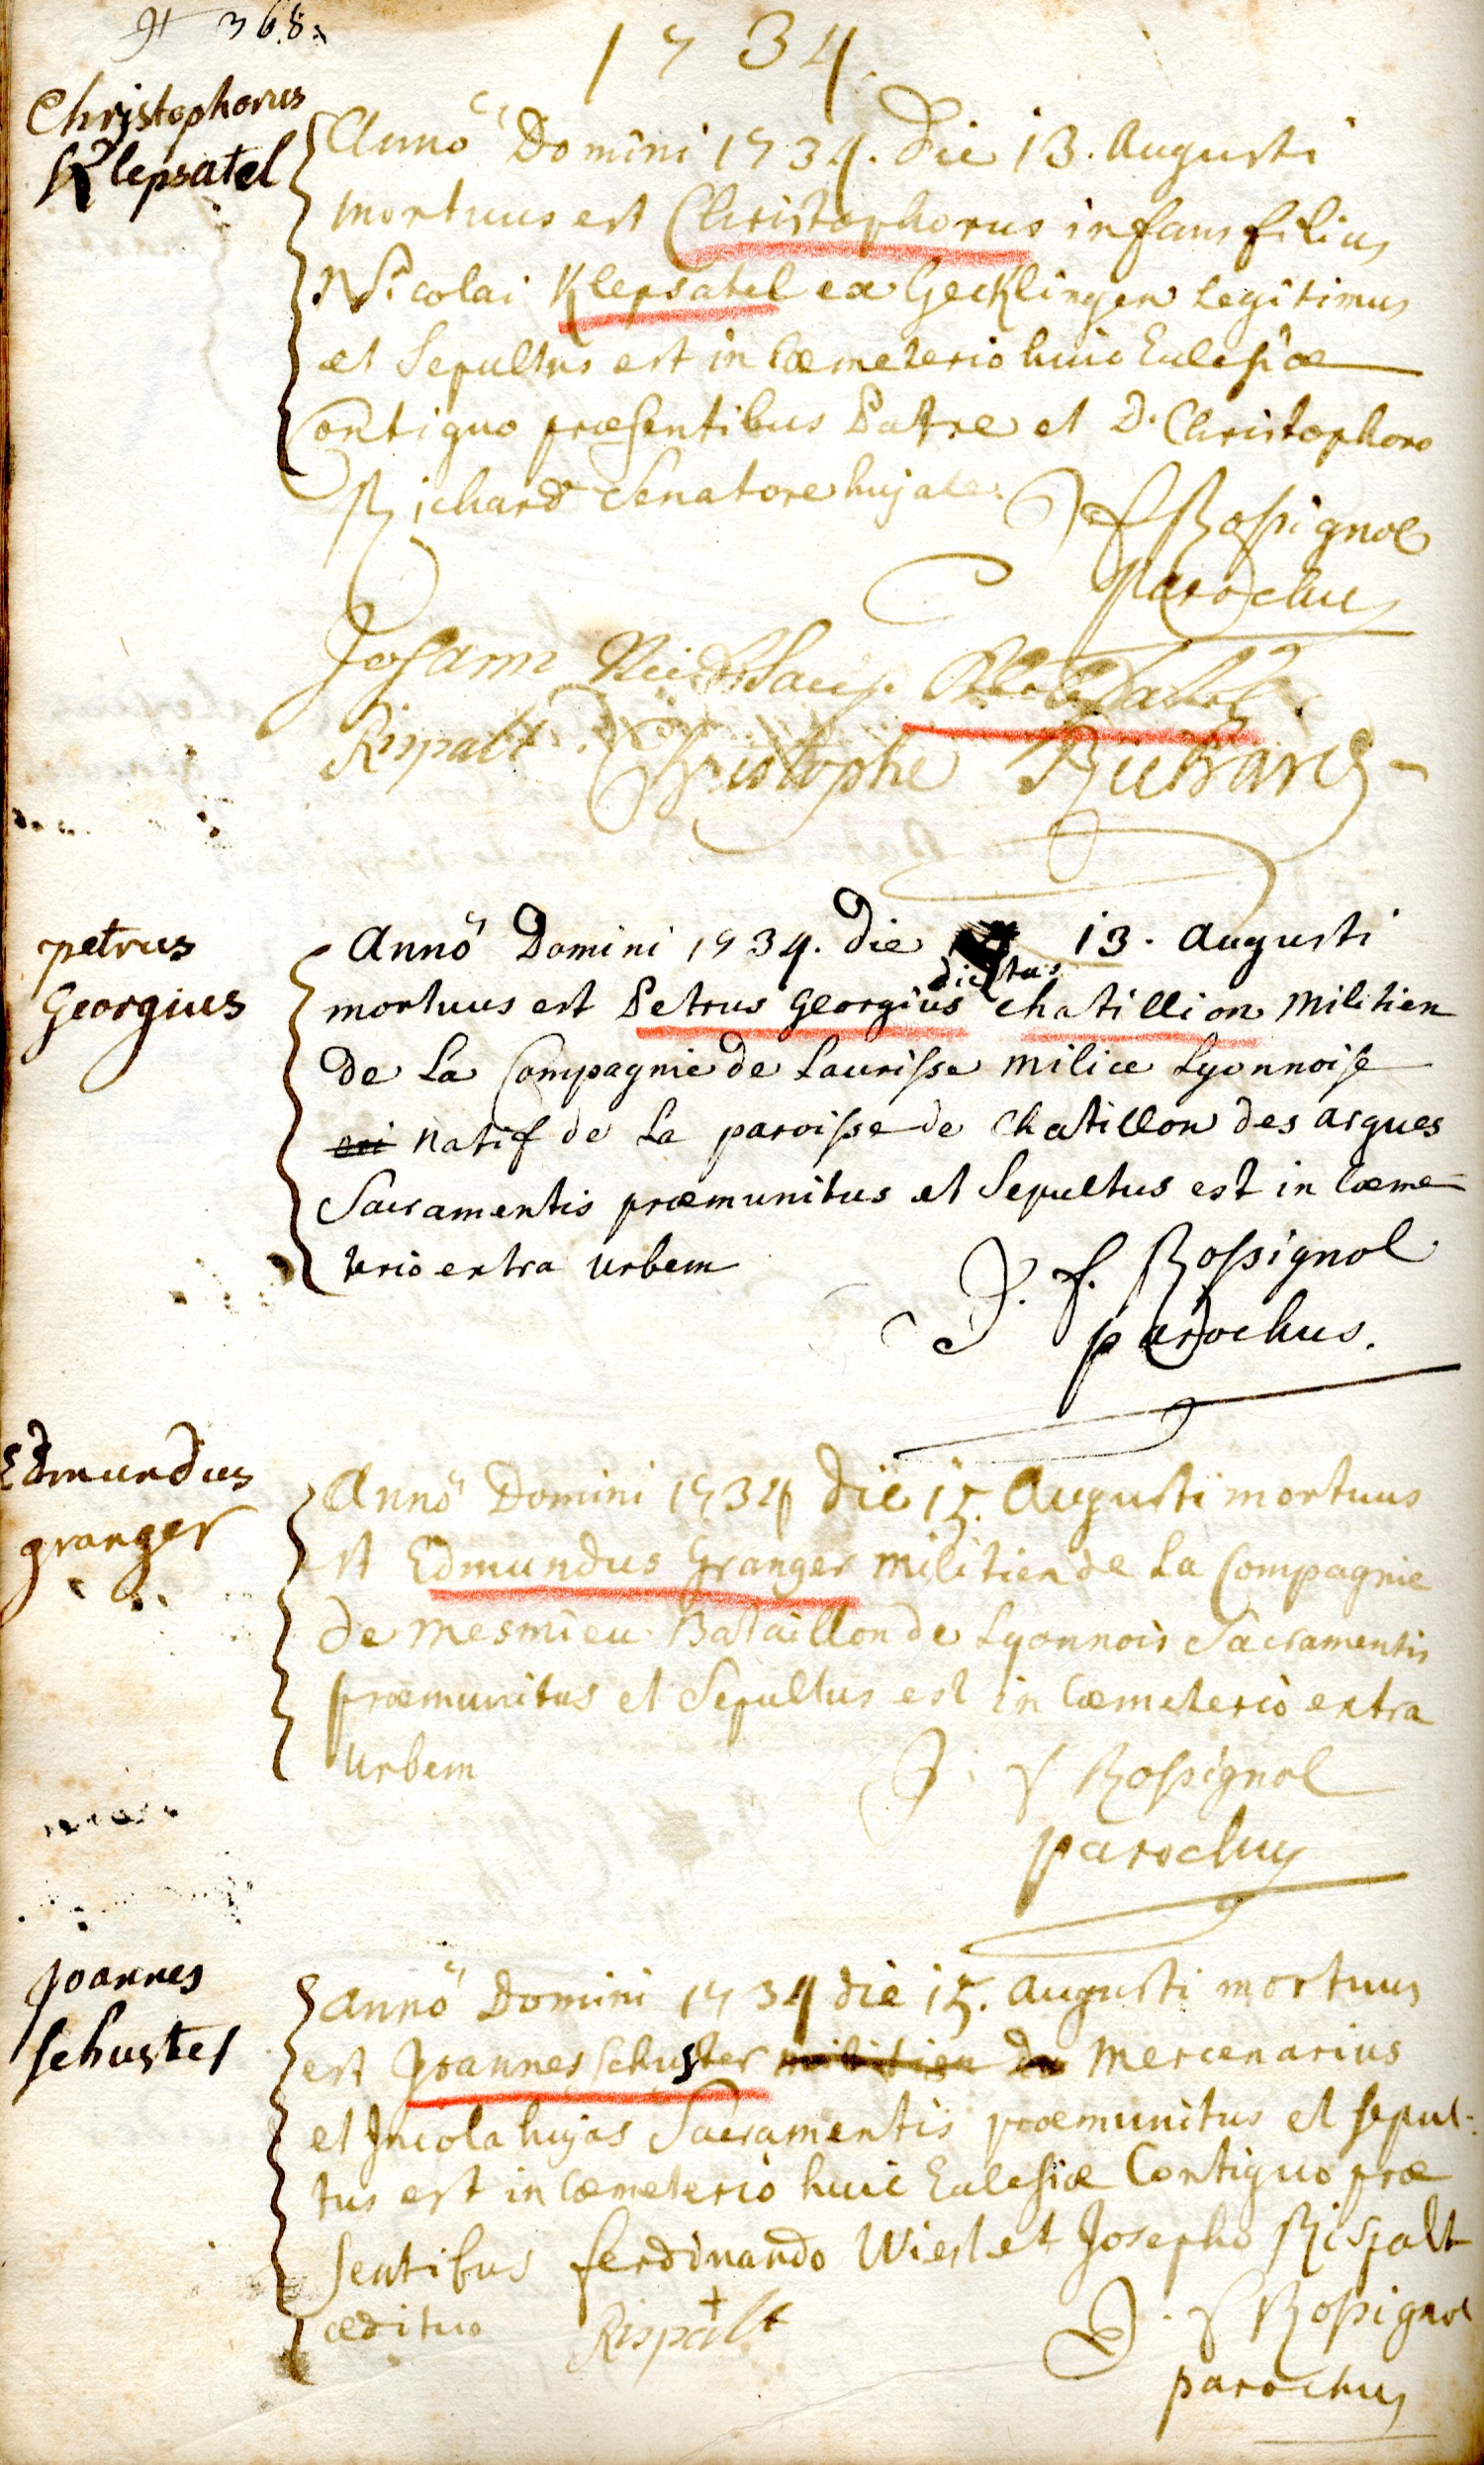 368.
1734.
Christophorus
Klepsatel
Annō Domini 1734. Die 13. Augusti
mortuus est Christophorus infans filius
Nicolai Klepsatel ex Gecklingen legitimus
et Sepultus est in Cœmeterio huic Ecclesiæ
Contiguo præsentibus Patre et D. Christophoro
Richard Senatore hujate.
J f Rossignol
parochus
Johann
Rispalt. Christophe Richard
petrus
Georgius
Annō Domini 1734. Die 13. Augusti
dictus
mortuus est Petrus Georgius chatillion militien
de La Compagnie de Laurisse milice Lyonnoise
natif de La paroisse de Chatillon des argues
Sacramentis præmunitus et Sepultus est in Cœme-
terio extra Urbem
J. f. Rossignol
parochus.
Edmundus
granger
Annō Domini 1734 die 15. Augusti mortuus
est Edmundus Granger militien de La Compagnie
de Mesmieu Bataillon de Lyonnois Sacramentis
præmunitus et Sepultus est in Cœmeterio extra
Urbem
J. f Rossignol
parochus
Joannes
schuster
annō Domini 1734 die 15. Augusti mortuus
est Joannes schuster militien de Mercenarius
et Incola hujas Sacramentis præmunitus et sepul-
tus est in Cœmeterio huic Ecclesiæ Contiguo præ
sentibus ferdinando Wiest et Josepho Rispalt
ædituo Rispalt
J. f Rossignol
parochus